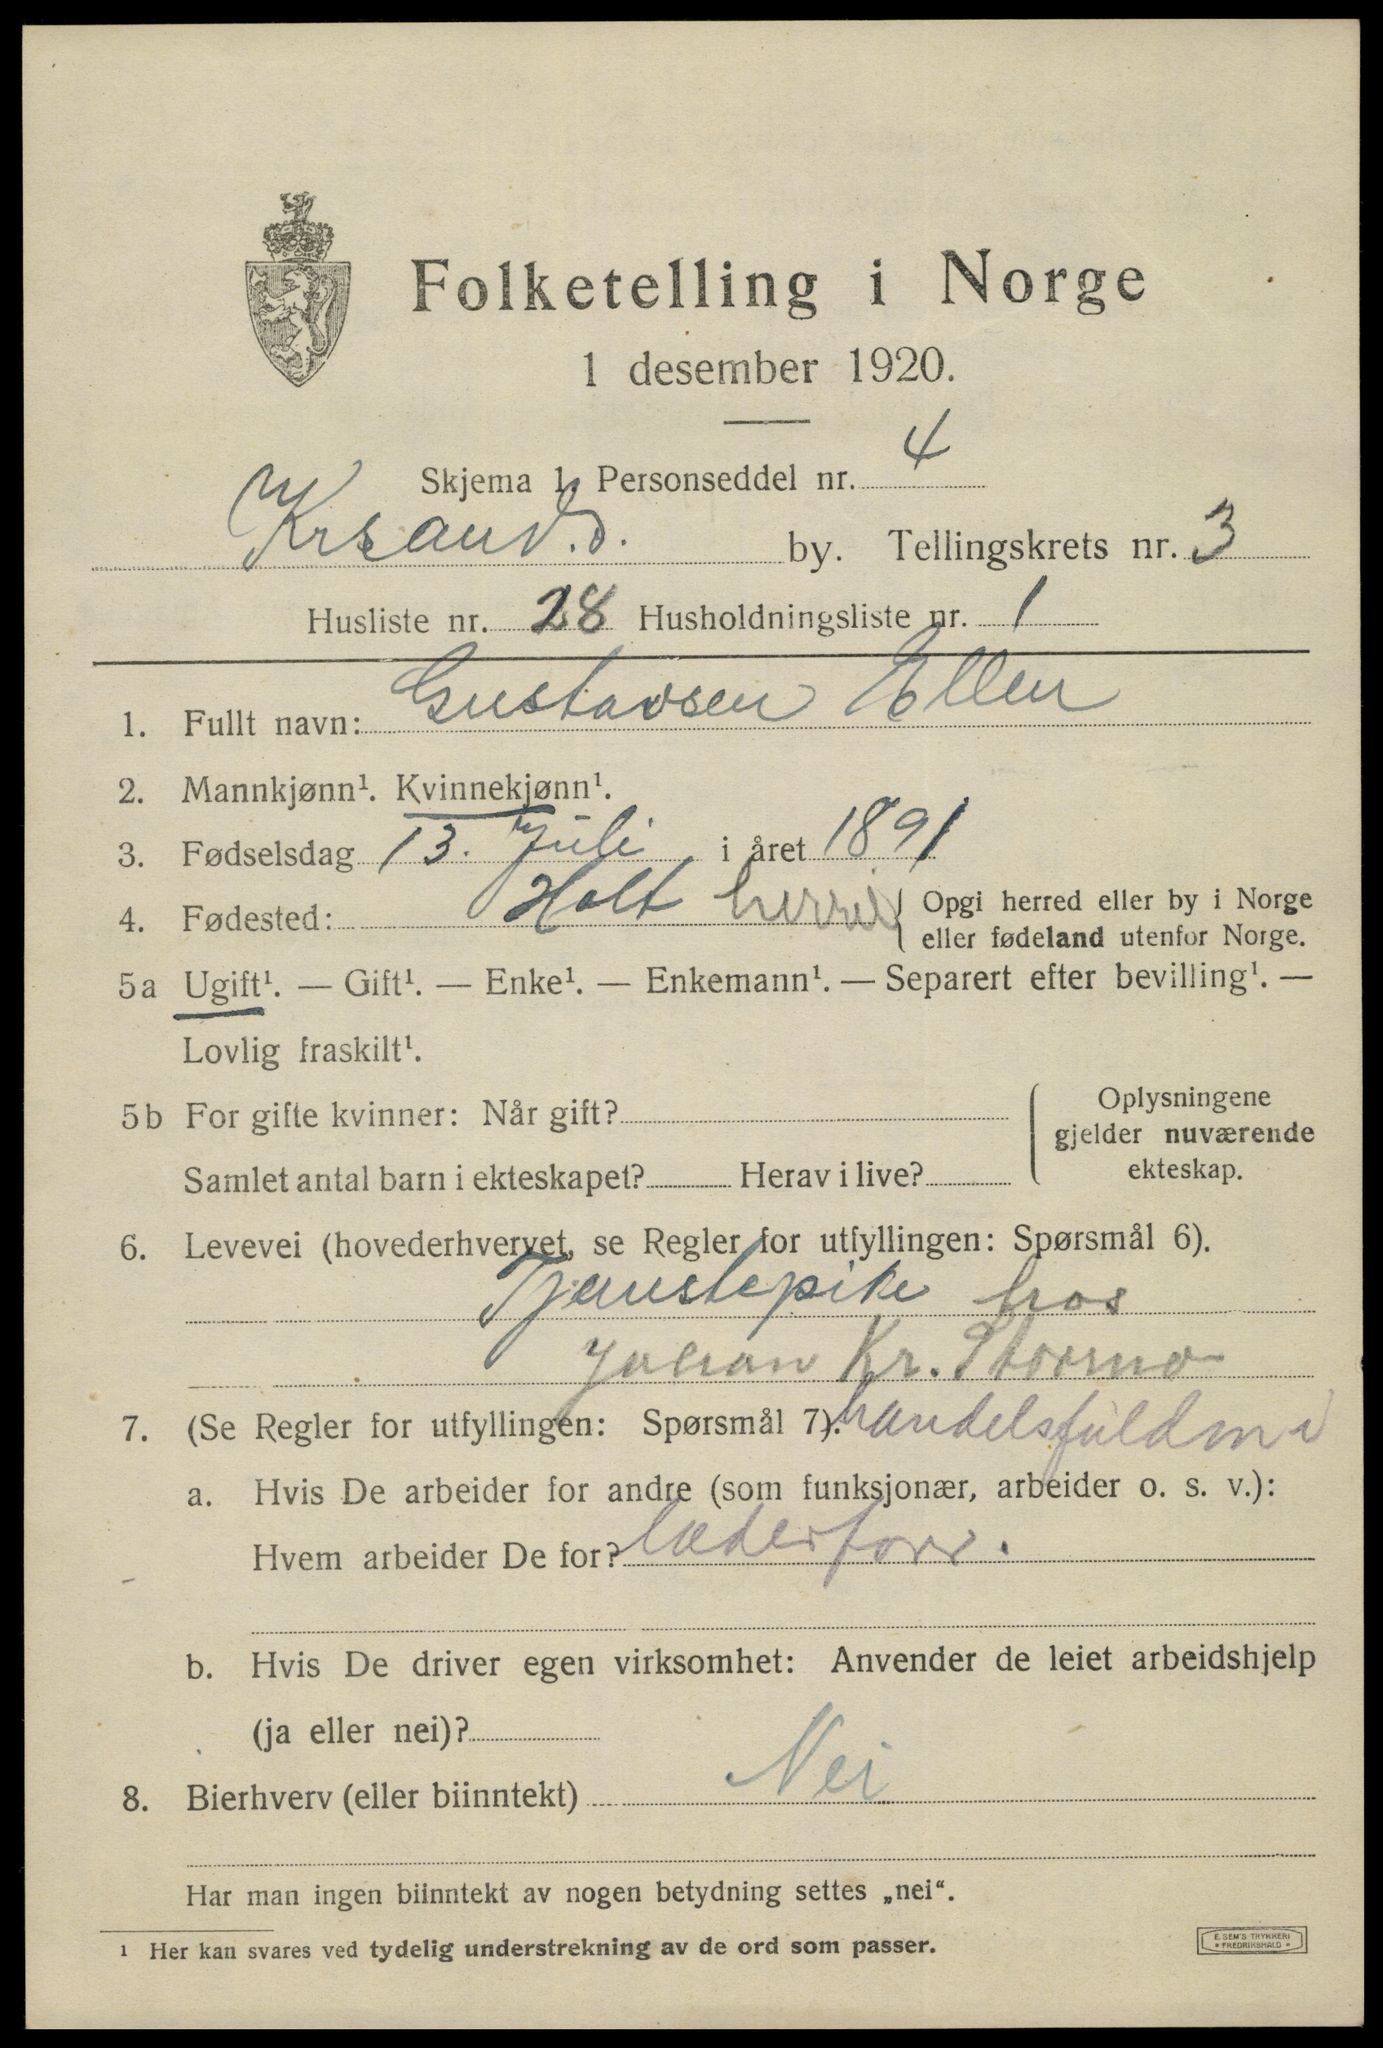 Folketelling i Norge
1 desember 1920.
Skjema 1. Personseddel nr. 4
Krsand.S. by. Tellingskrets nr. 3
Husliste nr. 28 Husholdningsliste nr. 1
1. Fullt navn: Gustavsen Ellen
2. Mannkjønn¹. Kvinnekjønn¹.
3. Fødselsdag 13. Juli i året 1891
4. Fødested: Holt herred { Opgi herred eller by i Norge
eller fødeland utenfor Norge.
5a Ugift¹. — Gift¹. — Enke¹. — Enkemann¹. — Separert efter bevilling¹. —
Lovlig fraskilt¹.
5b For gifte kvinner: Når gift?
Samlet antal barn i ekteskapet? Herav i live?
Oplysningene
gjelder nuværende
ekteskap.
6. Levevei (hovederhvervet, se Regler for utfyllingen: Spørsmål 6).
Tjenstepike hos
Johan Kr.
7. (Se Regler for utfyllingen: Spørsmål 7). handelsfuldm i
a. Hvis De arbeider for andre (som funksjonær, arbeider o. s. v.):
Hvem arbeider De for? læderforr.
b. Hvis De driver egen virksomhet: Anvender de leiet arbeidshjelp
(ja eller nei)?
8. Bierhverv (eller biinntekt) Nei
Har man ingen biinntekt av nogen betydning settes „nei“.
¹ Her kan svares ved tydelig understrekning av de ord som passer.
E. SEM'S TRYKKERI
* FREDRIKSHALD *